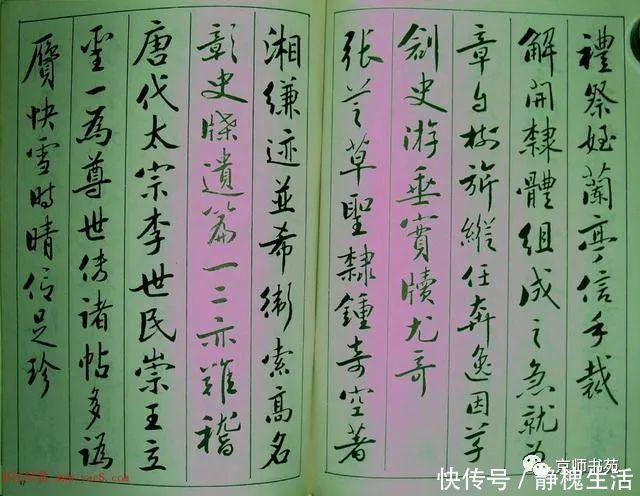 禮祭姪蘭亭信手裁
解開隸體組成之急就
章自樹旂縱任奔逸因草
創史游垂實牘尤奇
張芝草聖隸鍾奇空著
湘縑迹並希衛索高名
彰史牒遺篇一二亦難稽
唐代太宗李世民崇王立
聖一為尊世傳諸帖多譌
贗快雪時晴信足珍
京师书苑
快传号 / 静槐生活